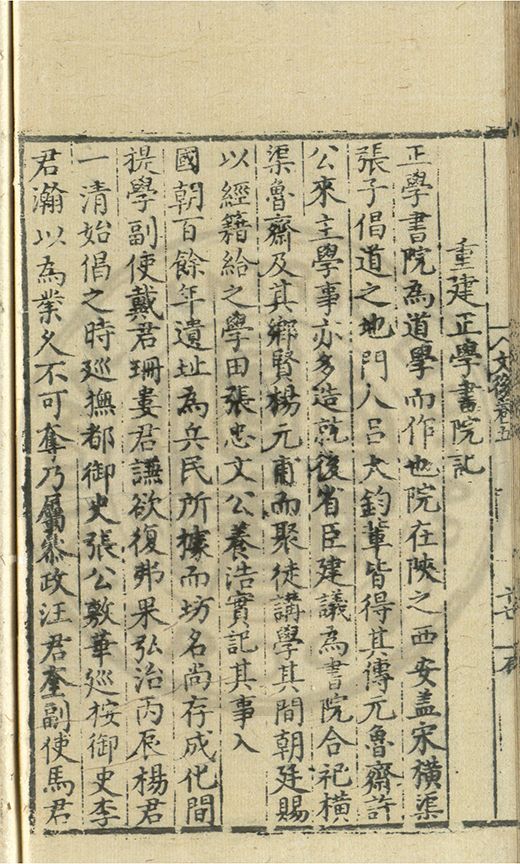 重建正學書院記
正學書院為道學而作也院在陝之西安盖宋橫渠
張子倡道之地門人呂大鈞軰皆得其傳元魯齋許
公來主學事亦多造就後省臣建議為書院合祀橫
渠魯齋及其鄉賢楊元甫而聚徒講學其間朝廷賜
以經籍給之學田張忠文公養浩實記其事入
國朝百餘年遺址為兵民所據而坊名尚存成化間
提學副使戴君珊婁君謙欲復弗果弘治丙辰楊君
一清始倡之時廵撫都御史張公敷華廵按御史李
君瀚以為業久不可奪乃屬叅政汪君奎副使馬君